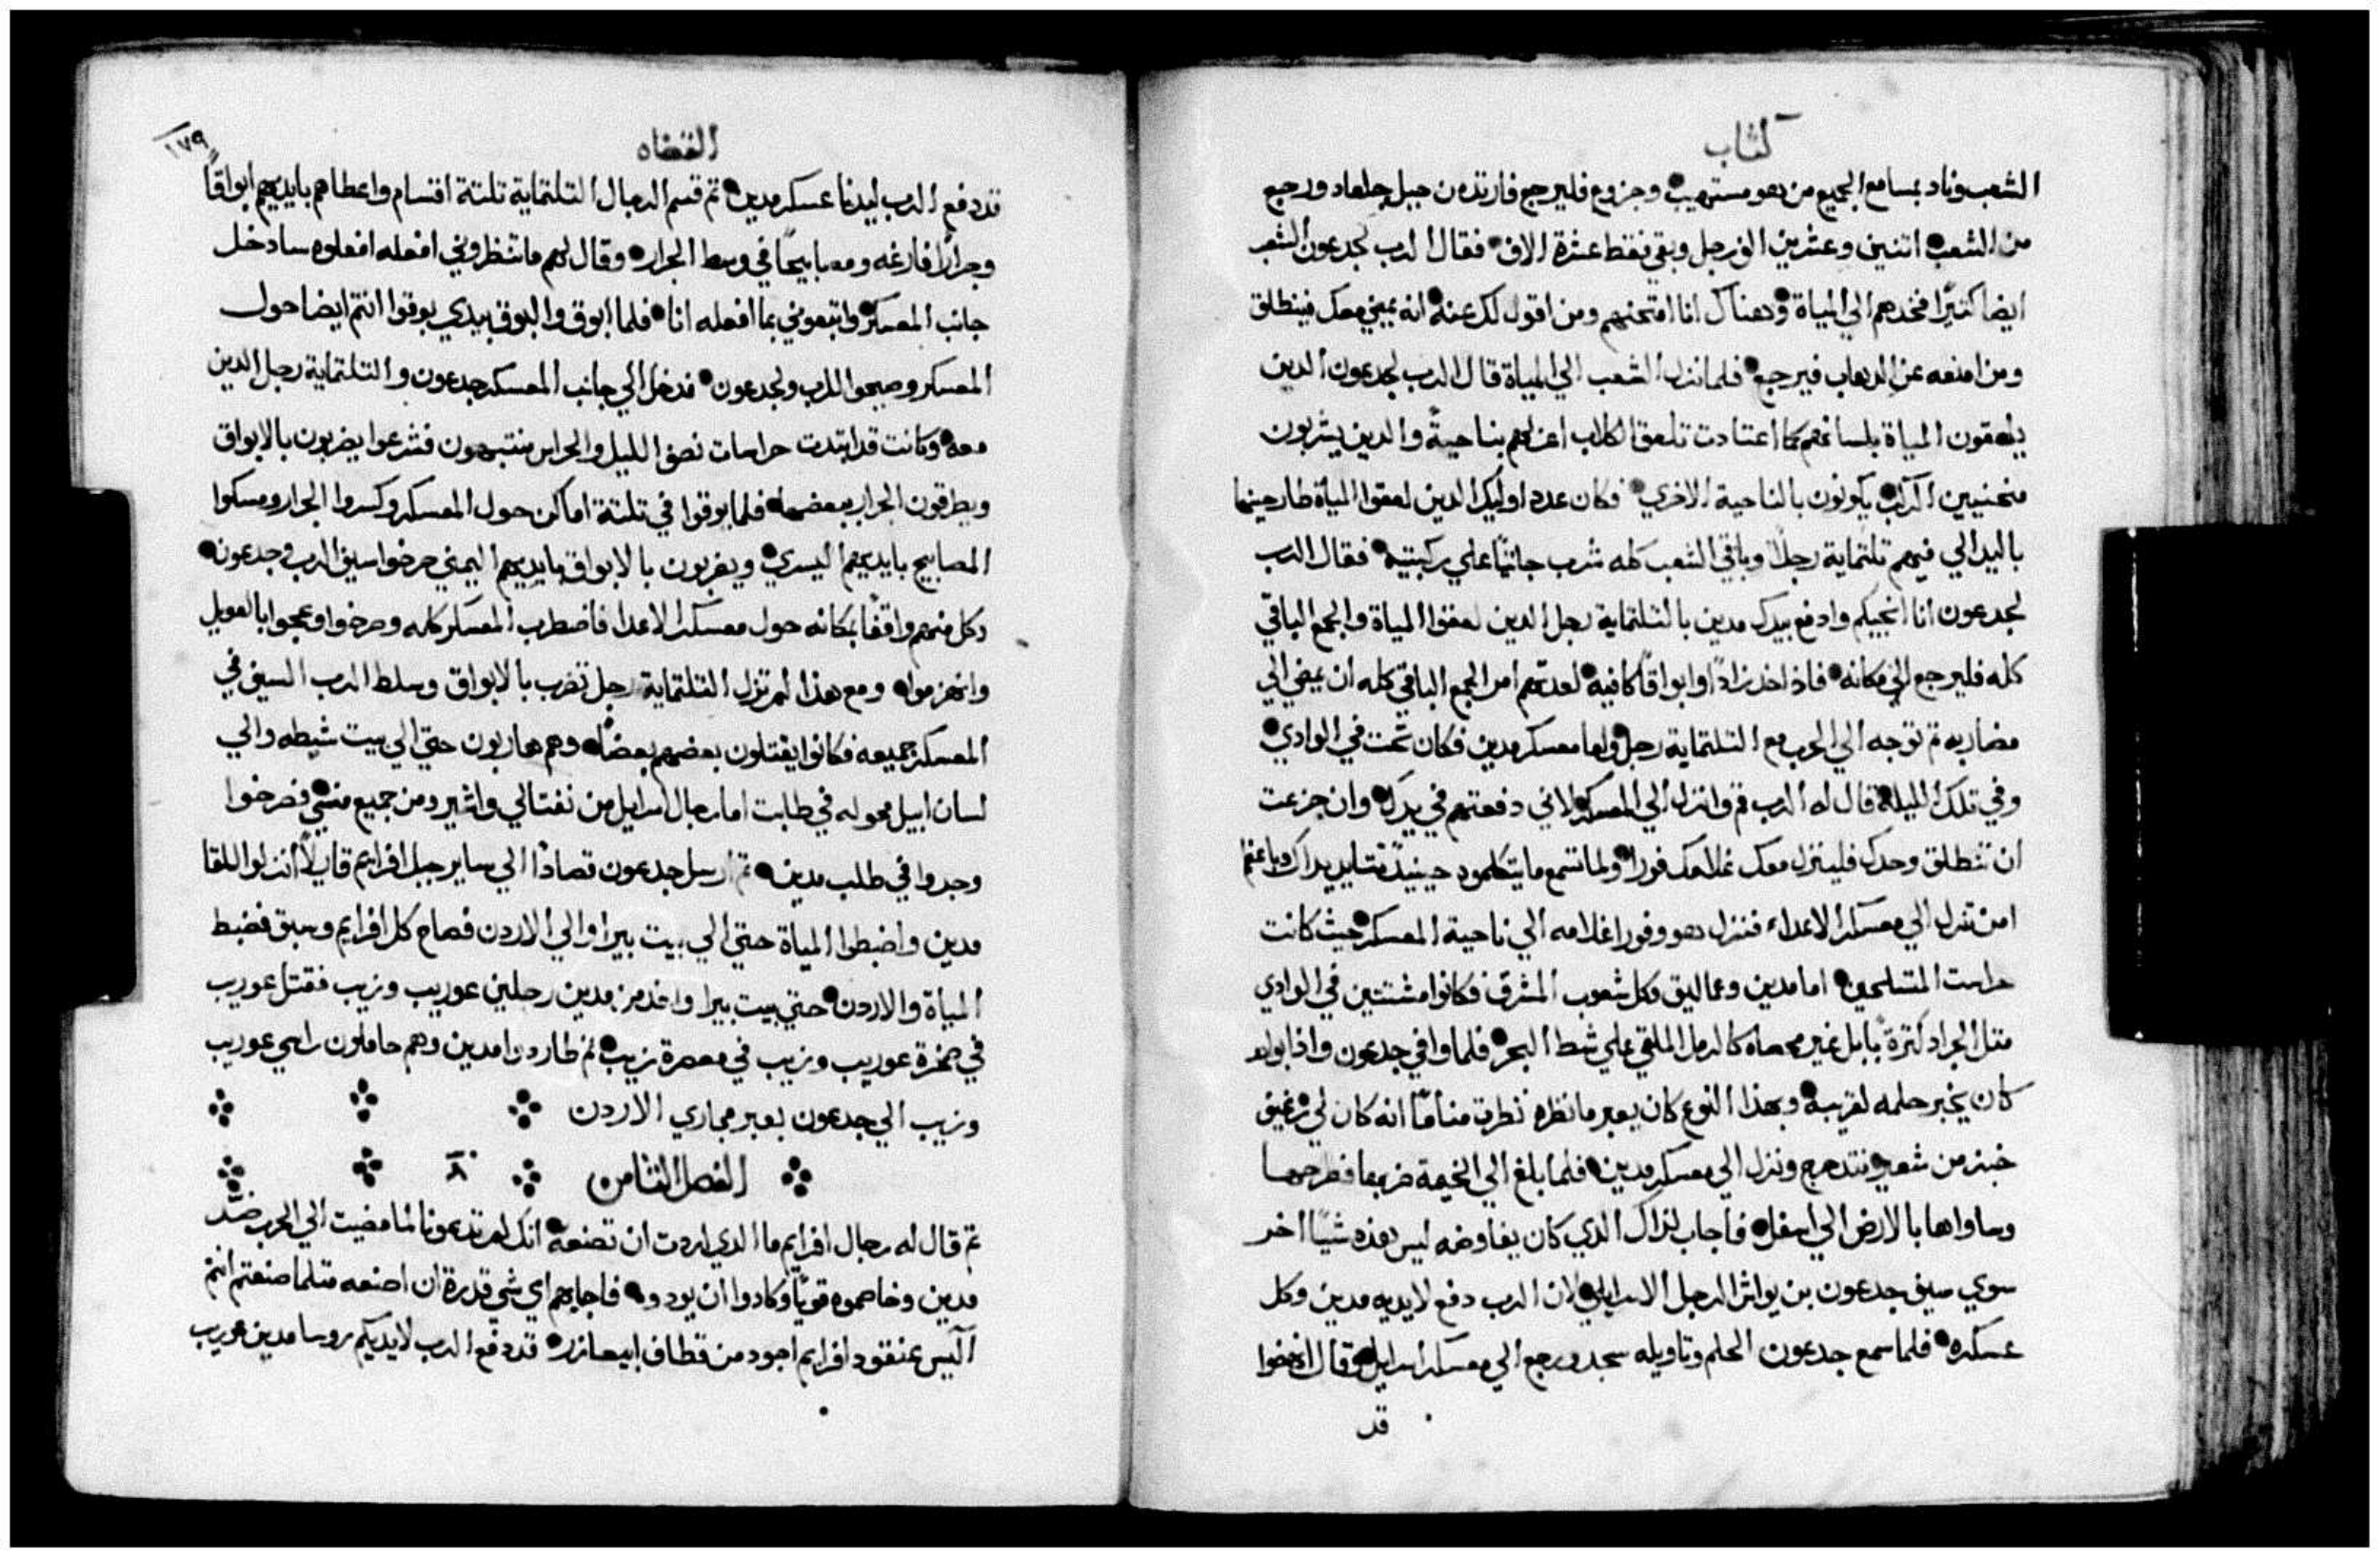 كتاب
الشعب وناد بمسامع الجميع من هو مستهيب وجزوع فليرجع فارتد من جبل جلعاد ورجع
من الشعب اتنين وعشرين الف رجل وبقي فقط عشرة الاف فقال الرب لجدعون الشعب
ايضا كثيرًا فخدهم الي المياة وهناك انا امتحنهم ومن اقول لك عنه انه يمضي معك فينطلق
ومن امنعه عن الدهاب فيرجع فلما نزل الشعب الي المياة قال الرب لجدعون الدين
يلعقون المياة بلسانهم كما اعتادت تلعق الكلاب اعزلهم بناحيةً والدين يشربون
منحنيين الركب يكونون بالناحية الاخري فكان عدد اوليك الدين لعقوا المياة طارحينها
باليد الي فيهم تلتماية رجلاً وباقي الشعب كله شرب جاثيًا علي ركبتيه فقال الرب
لجدعون انا انجيكم وادفع بيدك مدين بالتلتماية رجل الدين لعقوا المياة والجمع الباقي
كله فليرجع الي مكانه فاذ اخد زادًا وابواقًا كافيه لعدتهم امر الجمع الباقي كله ان يمضي الي
مضاربه تم توجه الي الحرب مع التلتماية رجل واما معسكر مدين فكان تحت في الوادي
وفي تلك الليلة قال له الرب قم وانزل الي المعسكر لاني دفعتهم في يدك وان جزعت
ان تنطلق وحدك فلينزل معك غلامك فورا ولما تسمع ما يتكلمون حينيدً تتايد يداك وباعتها
امن تنزل الي معسكر الاعداء فنزل هو وفورا غلامه الي ناحية المعسكر حيث كانت
حراست المتسلحين اما مدين وعماليق وكل شعوب المشرق فكانوا مشتتين في الوادي
متل الجراد كترةً بابل غير محصاه كالرمل الملقي علي شط البحر فلما وافي جدعون واذا بواحد
كان يخبر حلمه لقريبه وبهذا النوع كان يعبر ما نظره نظرت منامًا انه كان لي رغيف
خبز من شعير تدحرج ونزل الي معسكر مدين فلما بلغ الي الخيمة ضربها فطرحها
وساواها بالارض الي اسفل فاجاب لذاك الدي كان يفاوضه ليس هذه شيًا اخر
سوي سيف جدعون بن يواش الرجل الاسرايلي لان الرب دفع لايديه مدين وكل
عسكره فلما سمع جدعون الحلم وتاويله سجد ورجع الي معسكر اسرايل وقال انهضوا
قد
القضاه
١٧٩
قد دفع الرب ليدنا عسكر مدين تم قسم الرجال التلتماية تلتة اقسام واعطاهم بايديهم ابواقًا
وجرارًا فارغه ومصابيحًا في وسط الجرار وقال لهم ما تنظروني افعله افعلوه سادخل
جانب المعسكر واتبعوني بما افعله انا فلما ابوق والبوق بيدي بوقوا انتم ايضا حول
المعسكر وصيحوا للرب ولجدعون فدخل الي جانب المعسكر جدعون والتلتماية رجل الدين
معه وكانت قد ابتدت حراسات نصف الليل والحراس منتبهون فشرعوا يضربون بالابواق
ويطرقون الجرار ببعضها فلما بوقوا في تلتة اماكن حول المعسكر وكسروا الجرار ومسكوا
المصابيح بايديهم اليسري ويضربون بالابواق بايديهم اليمني صرخوا سيف الرب وجدعون
وكل منهم واقفًا بمكانه حول معسكر الاعدا فاضطرب المعسكر كله وصرخوا وعجوا بالعويل
وانهزموا ومع هذا لم تزل التلتماية رجل تضرب بالابواق وسلط الرب السيف في
المعسكر جميعه فكانوا يقتلون بعضهم بعضًا وهم هاربون حتي الي بيت شيطه والي
لسان ابيل محوله في طابت اما رجال اسرايل من نفتالي واشير ومن جميع منسي فصرخوا
وجدوا في طلب مدين تم ارسل جدعون قصادًا الي ساير جبل افرايم قايلاً انزلوا للقا
مدين واضبطوا المياة حتي الي بيت بيرا والي الاردن فصاح كل افرايم وسبق فضبط
المياة والاردن حتي بيت بيرا واخد من مدين رجلين عوريب وزيب فقتل عوريب
في صخرة عوريب وزيب في معصرة زيب تم طاردوا مدين وهم حاملون راسي عوريب
وزيب الي جدعون بعبر مجاري الاردن
الفصل التامن ٨
تم قال له رجال افرايم ما الدي اردت ان تصنعه انك لم تدعونا لما مضيت الي الحرب ضد
مدين وخاصموه قويًا وكادوا ان يودوه فاجابهم اي شي قدرة ان اصنعه متلما صنعتم انتم
اليس عنقود افرايم اجود من قطاف ابيعازر قد دفع الرب لايديكم روسا مدين عوريب